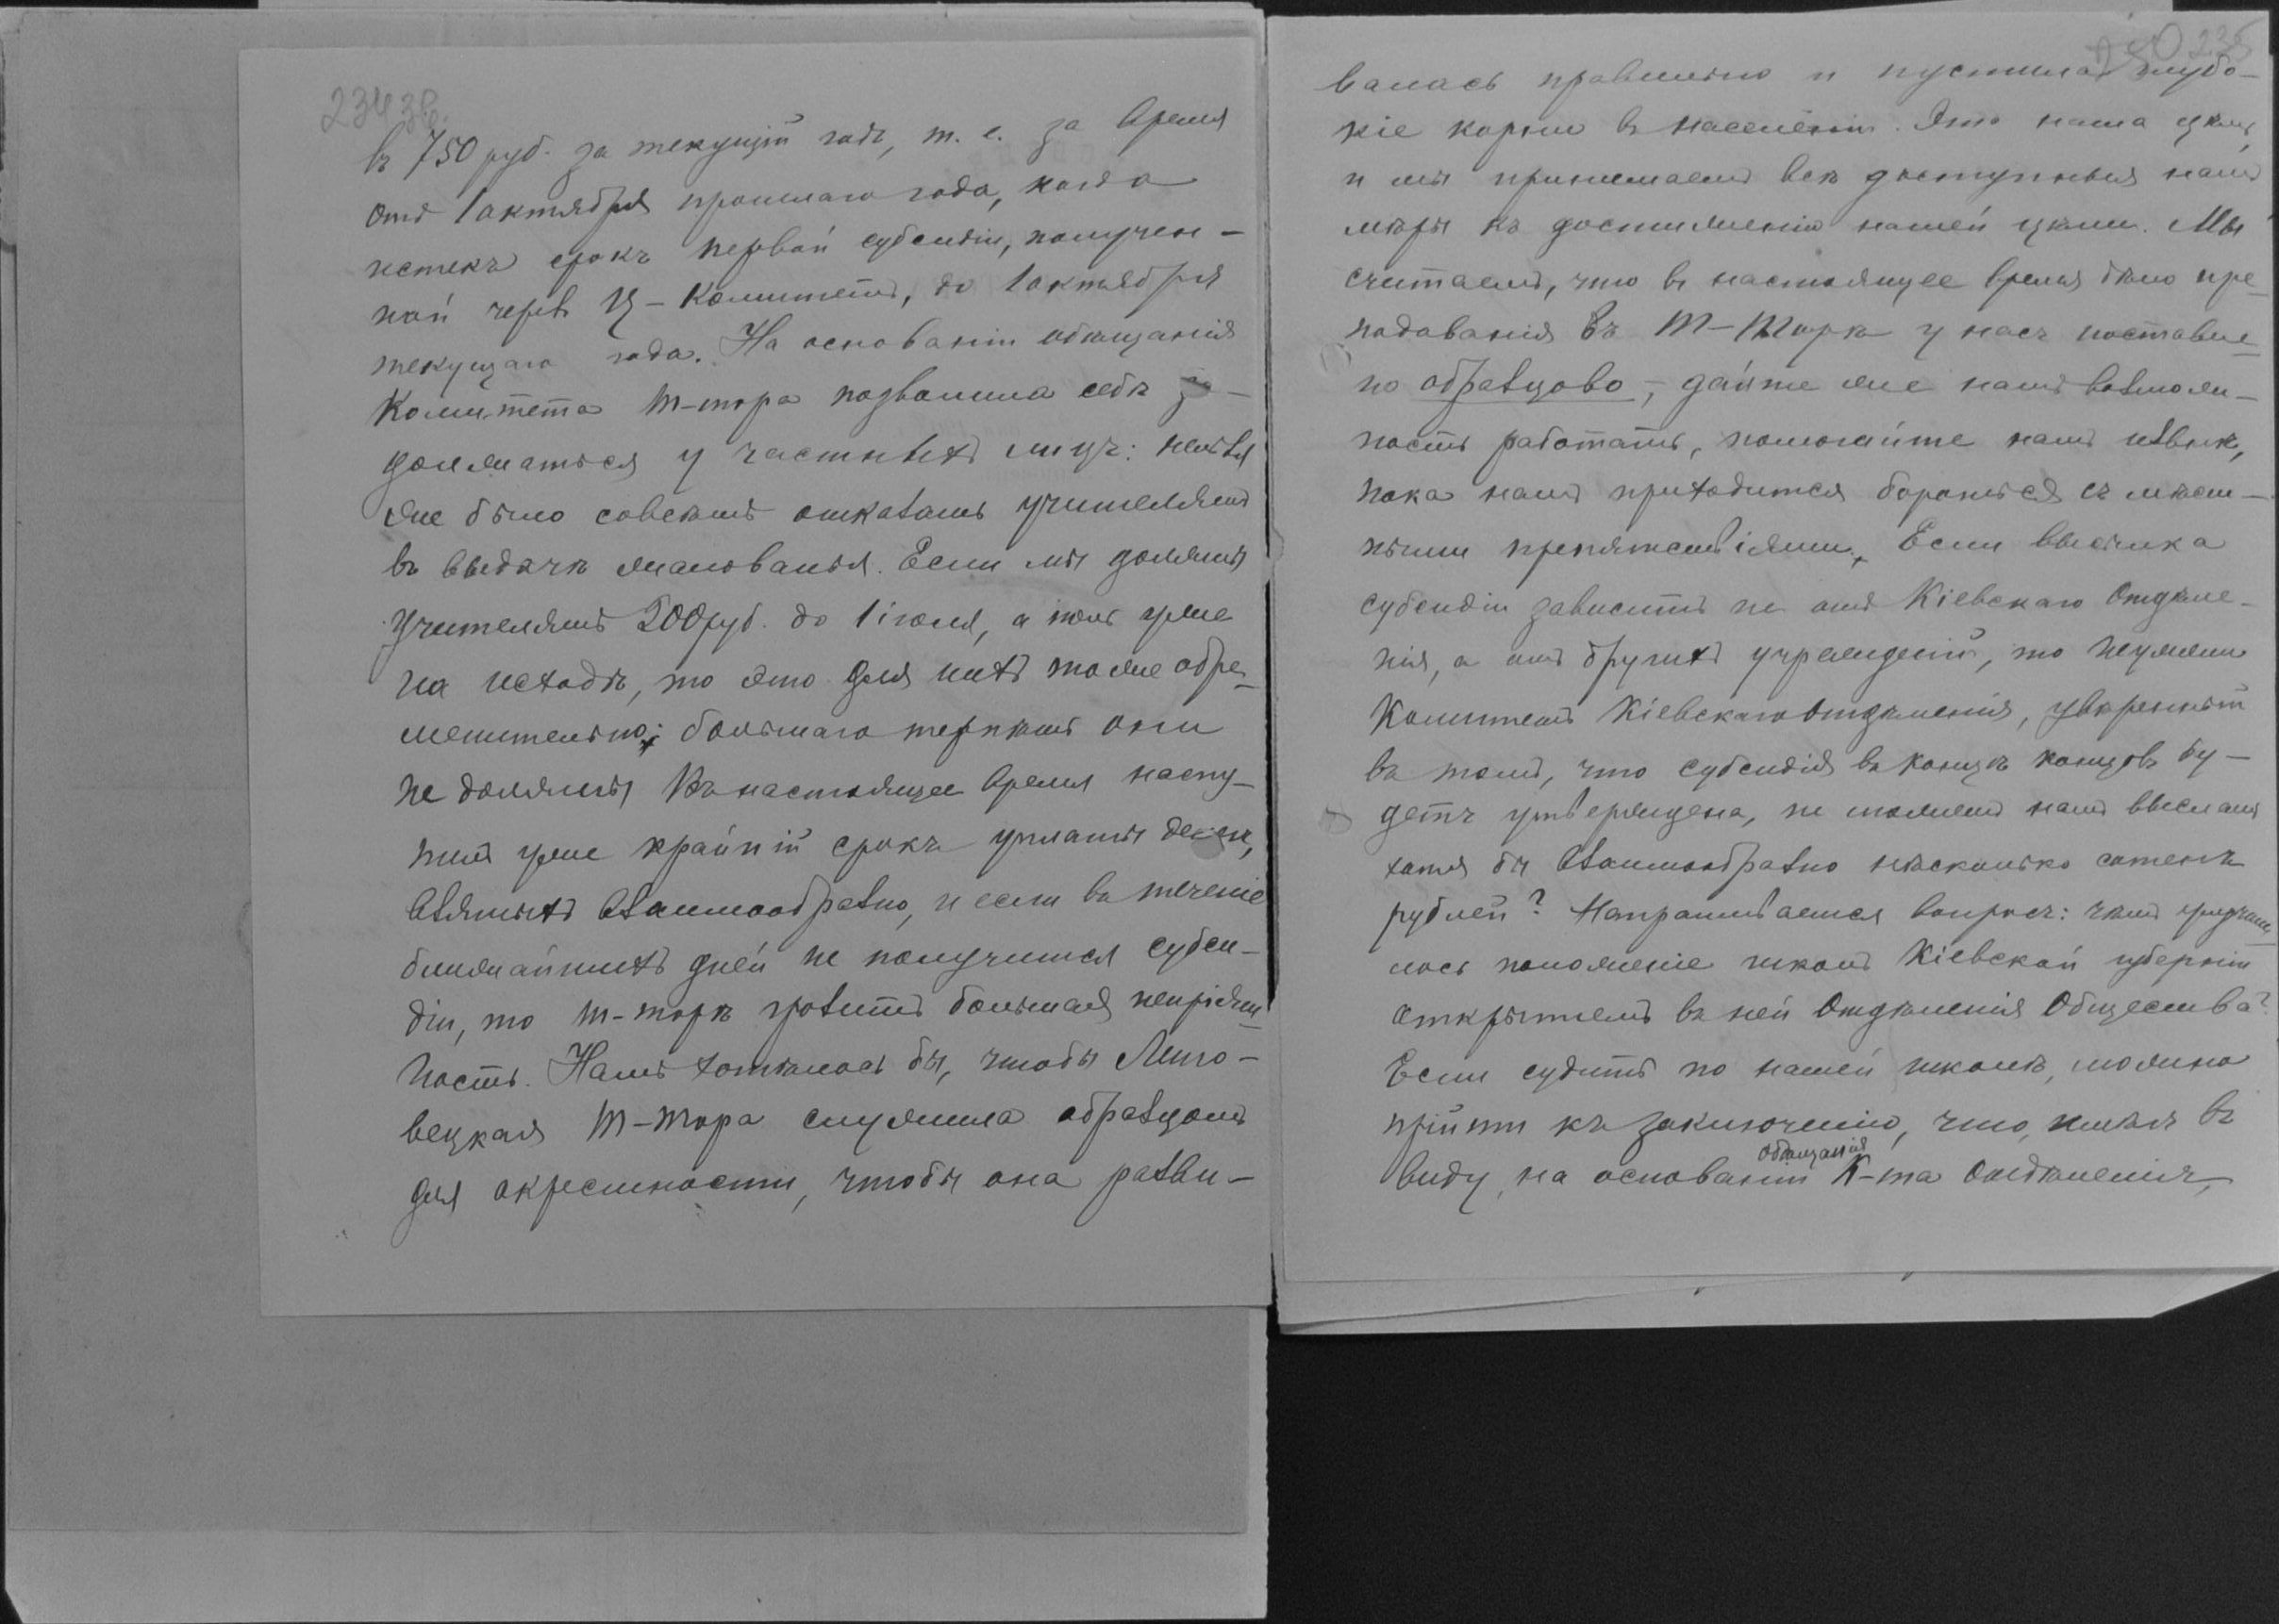 234 зв.
въ 750 руб. за текущій годъ, т. е. за время
отъ 1 октября прошлаго года, когда
истекъ срокъ первой субсидіи, получен-
ной черезъ Ц-Комитетъ, до 1 октября
текущаго года. На основаніи обѣщанія
Комитета Т-тора позволила себѣ за-
должаться у частныхъ лицъ: нельзя
же было совсѣмъ отказать учителямъ
въ выдачѣ жалованья. Если мы должны
учителямъ 200 руб. до 1 іюля, а іюль уже
на исходѣ, то это для нихъ тоже обре-
менительно; большаго терпѣть они
не должны. Въ настоящее время насту-
пилъ уже крайній срокъ уплаты денегъ,
взятыхъ взаимообразно, и если въ теченіе
ближайшихъ дней не получится субси-
діи, то Т-торѣ грозитъ большая непріят-
ность. Намъ хотѣлось бы, чтобы Лито-
вецкая Т-Тора служила образцомъ
для окрестности, чтобы она разви-
250 235
валась правильно и пустила глубо-
кіе корни въ населеніи. Это наша цѣль,
и мы принимаемъ всѣ доступныя намъ
мѣры къ достиженію нашей цѣли. Мы
считаемъ, что въ настоящее время дѣло пре-
подаванія въ Т-Торѣ у насъ поставле-
но образцово, - дайте же намъ возмож-
ность работать, помогайте намъ извнѣ,
пока намъ приходится бороться съ мѣст-
ными препятствіями. Если высылка
субсидіи зависитъ не отъ Кіевскаго Отдѣле-
нія, а отъ другихъ учрежденій, то неужели
Комитетъ Кіевскаго Отдѣленія, увѣренный
въ томъ, что субсидія въ концѣ концовъ бу-
детъ утверждена, не можетъ намъ выслать
хотя бы взаимообразно нѣсколько сотенъ
рублей? Напрашивается вопросъ: чѣмъ улучши-
лось положеніе школъ Кіевской губерніи
открытіемъ въ ней Отдѣленія Общества?
Если судить по нашей школѣ, можно
прійти къ заключенію, что, имѣя въ
обѣщанія
виду, на основаніи К-та Отдѣленія,